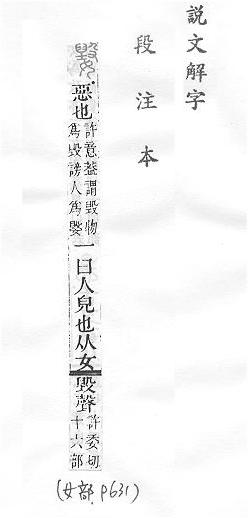 說文解字
段注本
惡也許意葢謂毀物為毀謗人為一曰人兒也从女毀聲許委切十六部
(女部.P631)